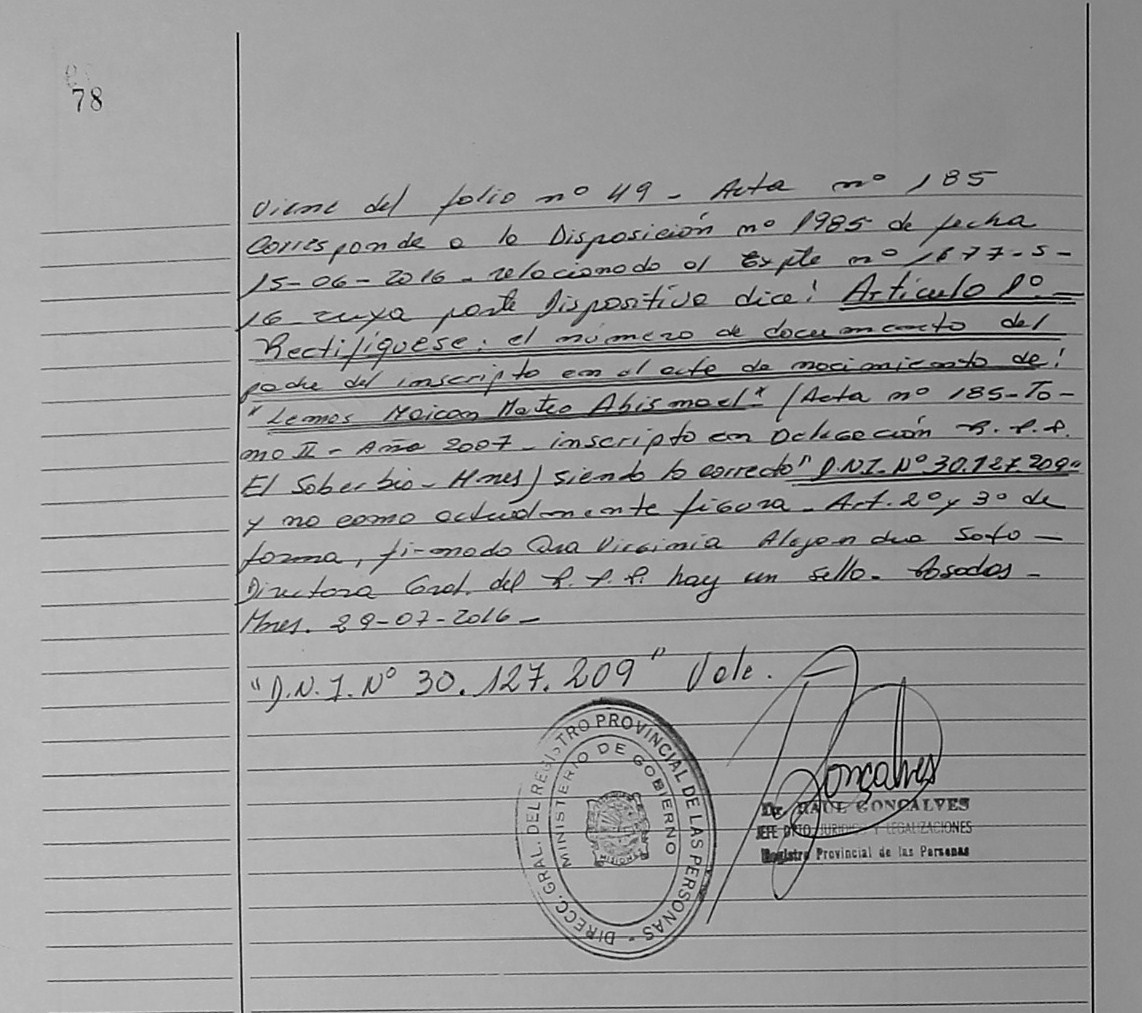 78
Viene del folio nº 49 - Acta nº 185
Corresponde a la Disposición nº 1985 de fecha
15-06-2016 - relacionado al Expte nº 1677-S-
16 cuya parte Dispositiva dice: Artículo 1º -
Rectifíquese: el número de documento del
padre del inscripto en el acta de nacimiento de:
"Lemos Maicon Mateo Abismael" (Acta nº 185-To-
mo II - Año 2007 - inscripto en Delegación R.P.P.
El Soberbio - Mnes) siendo lo correcto "D.N.I. Nº 30.127.209"
y no como actualmente figura - Art. 2º y 3º de
forma, firmado Dra Virginia Alejandra Soto -
Directora Gral. del R.P.P. hay un sello. Posadas -
Mnes. 29-07-2016 -
"D.N.I. Nº 30.127.209" Vale.
Gonçalves
Dr. RAUL GONCALVES
JEFE DPTO. JURIDICO Y LEGALIZACIONES
Registro Provincial de las Personas
DIRECC. GRAL. DEL REGISTRO PROVINCIAL DE LAS PERSONAS -
MINISTERIO DE GOBIERNO
MISIONES